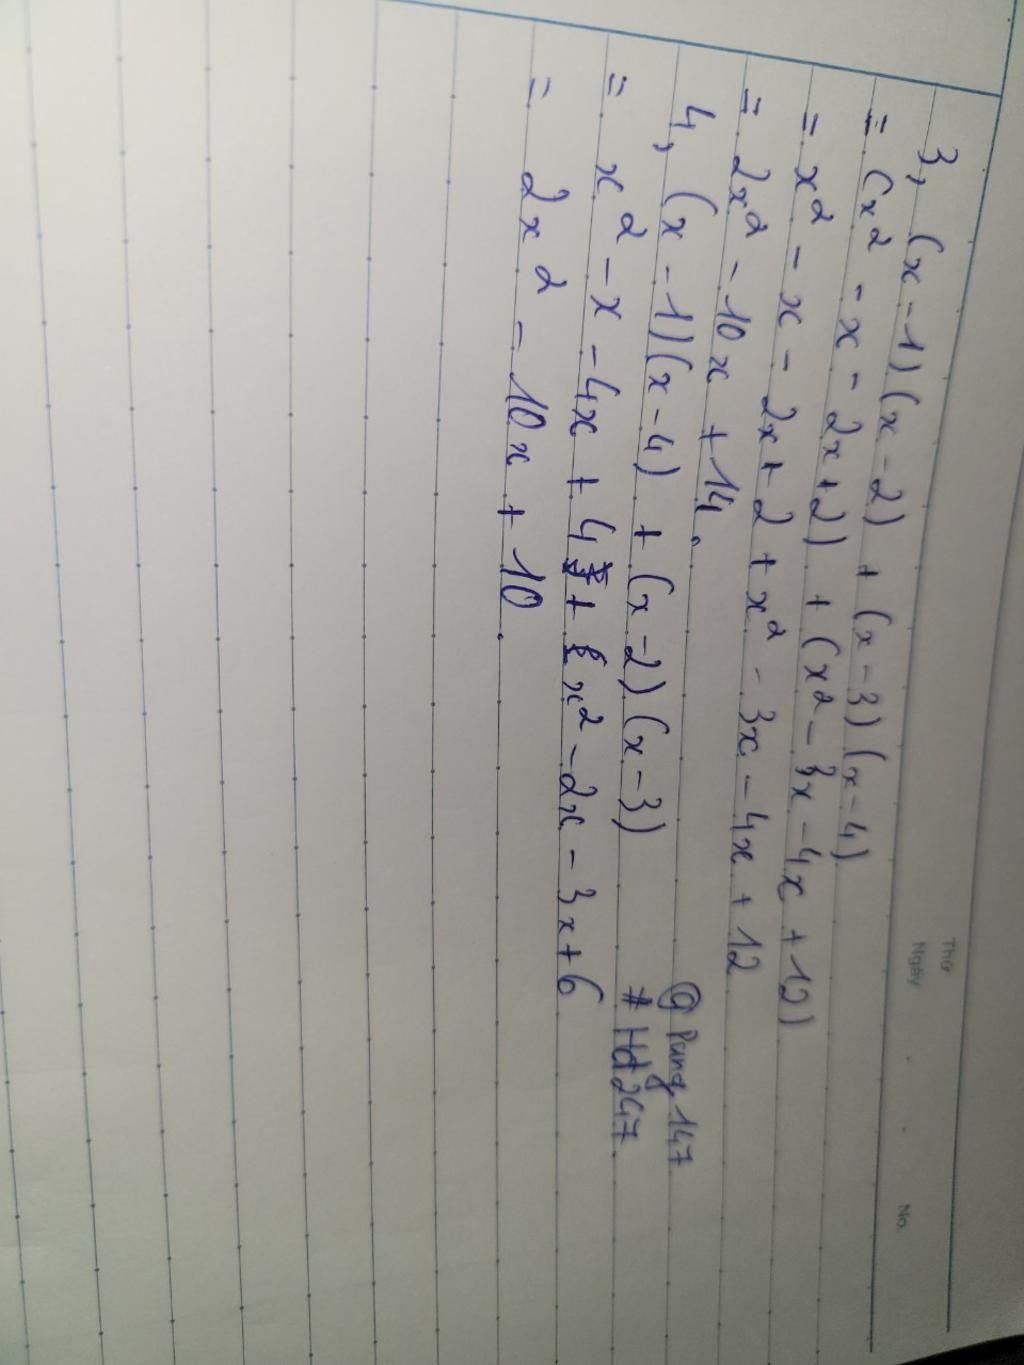 Thứ
Ngày . . No.
3, (x - 1)(x - 2) + (x - 3)(x - 4)
= (x² - x - 2x + 2) + (x² - 3x - 4x + 12)
= x² - x - 2x + 2 + x² - 3x - 4x + 12
= 2x² - 10x + 14.
4, (x - 1)(x - 4) + (x - 2)(x - 3)
= x² - x - 4x + 4 + x² - 2x - 3x + 6
= 2x² - 10x + 10.
@ Pung 147
# Hd 247